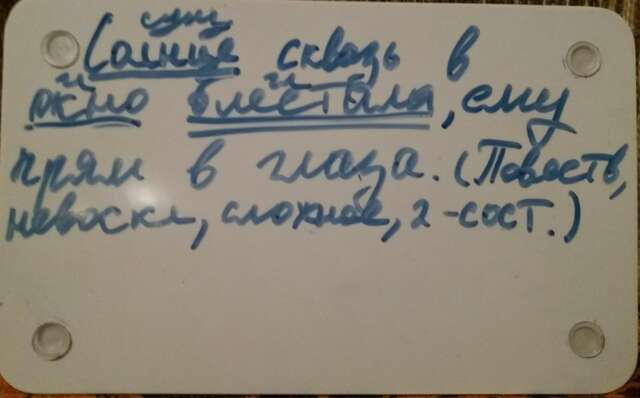 сущ
Солнце сквозь в
окно блестела, ему
прям в глаза. (Повеств,
невоскл, сложное, 2-сост.)